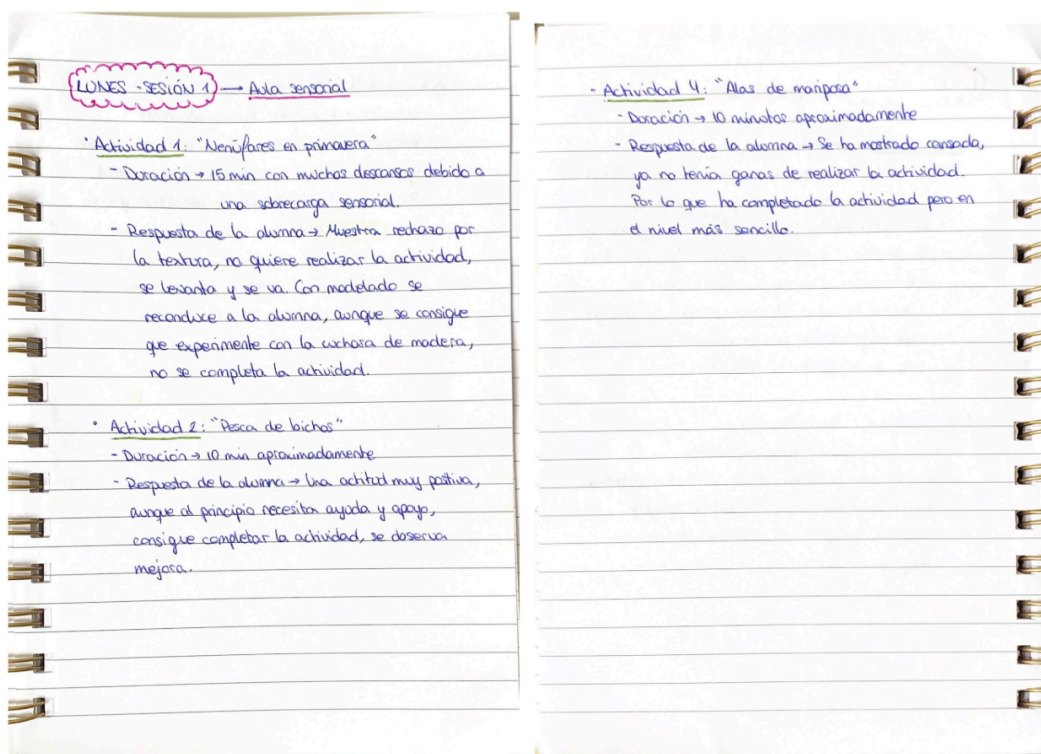 LUNES - SESIÓN 1 → Aula sensorial
· Actividad 1: "Nenúfares en primavera"
- Duración → 15 min con muchos descansos debido a
una sobrecarga sensorial.
- Respuesta de la alumna → Muestra rechazo por
la textura, no quiere realizar la actividad,
se levanta y se va. Con modelado se
reconduce a la alumna, aunque se consigue
que experimente con la cuchara de madera,
no se completa la actividad.
· Actividad 2: "Pesca de bichos"
- Duración → 10 min aproximadamente
- Respuesta de la alumna → Una actitud muy positiva,
aunque al principio necesita ayuda y apoyo,
consigue completar la actividad, se observa
mejora.
- Actividad 4: "Alas de mariposa"
- Duración → 10 minutos aproximadamente
- Respuesta de la alumna → Se ha mostrado cansada,
ya no tenía ganas de realizar la actividad.
Por lo que ha completado la actividad pero en
el nivel más sencillo.